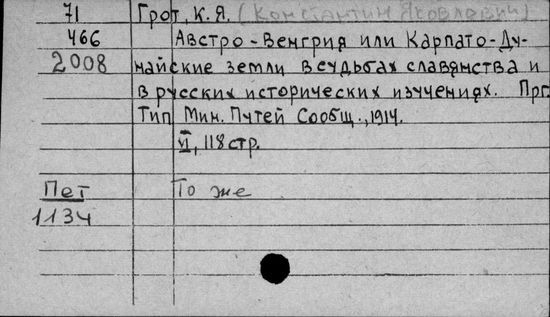 71 Грот, К. Я. (Константин Яковлевич)
466 Австро-Венгрия или Карпато-Ду-
2008 найские земли в судьбах славянства и
в русских исторических изучениях. Прг.
Тип. Мин. Путей Сообщ., 1914.
VI, 118 стр.
Пет То же
1134